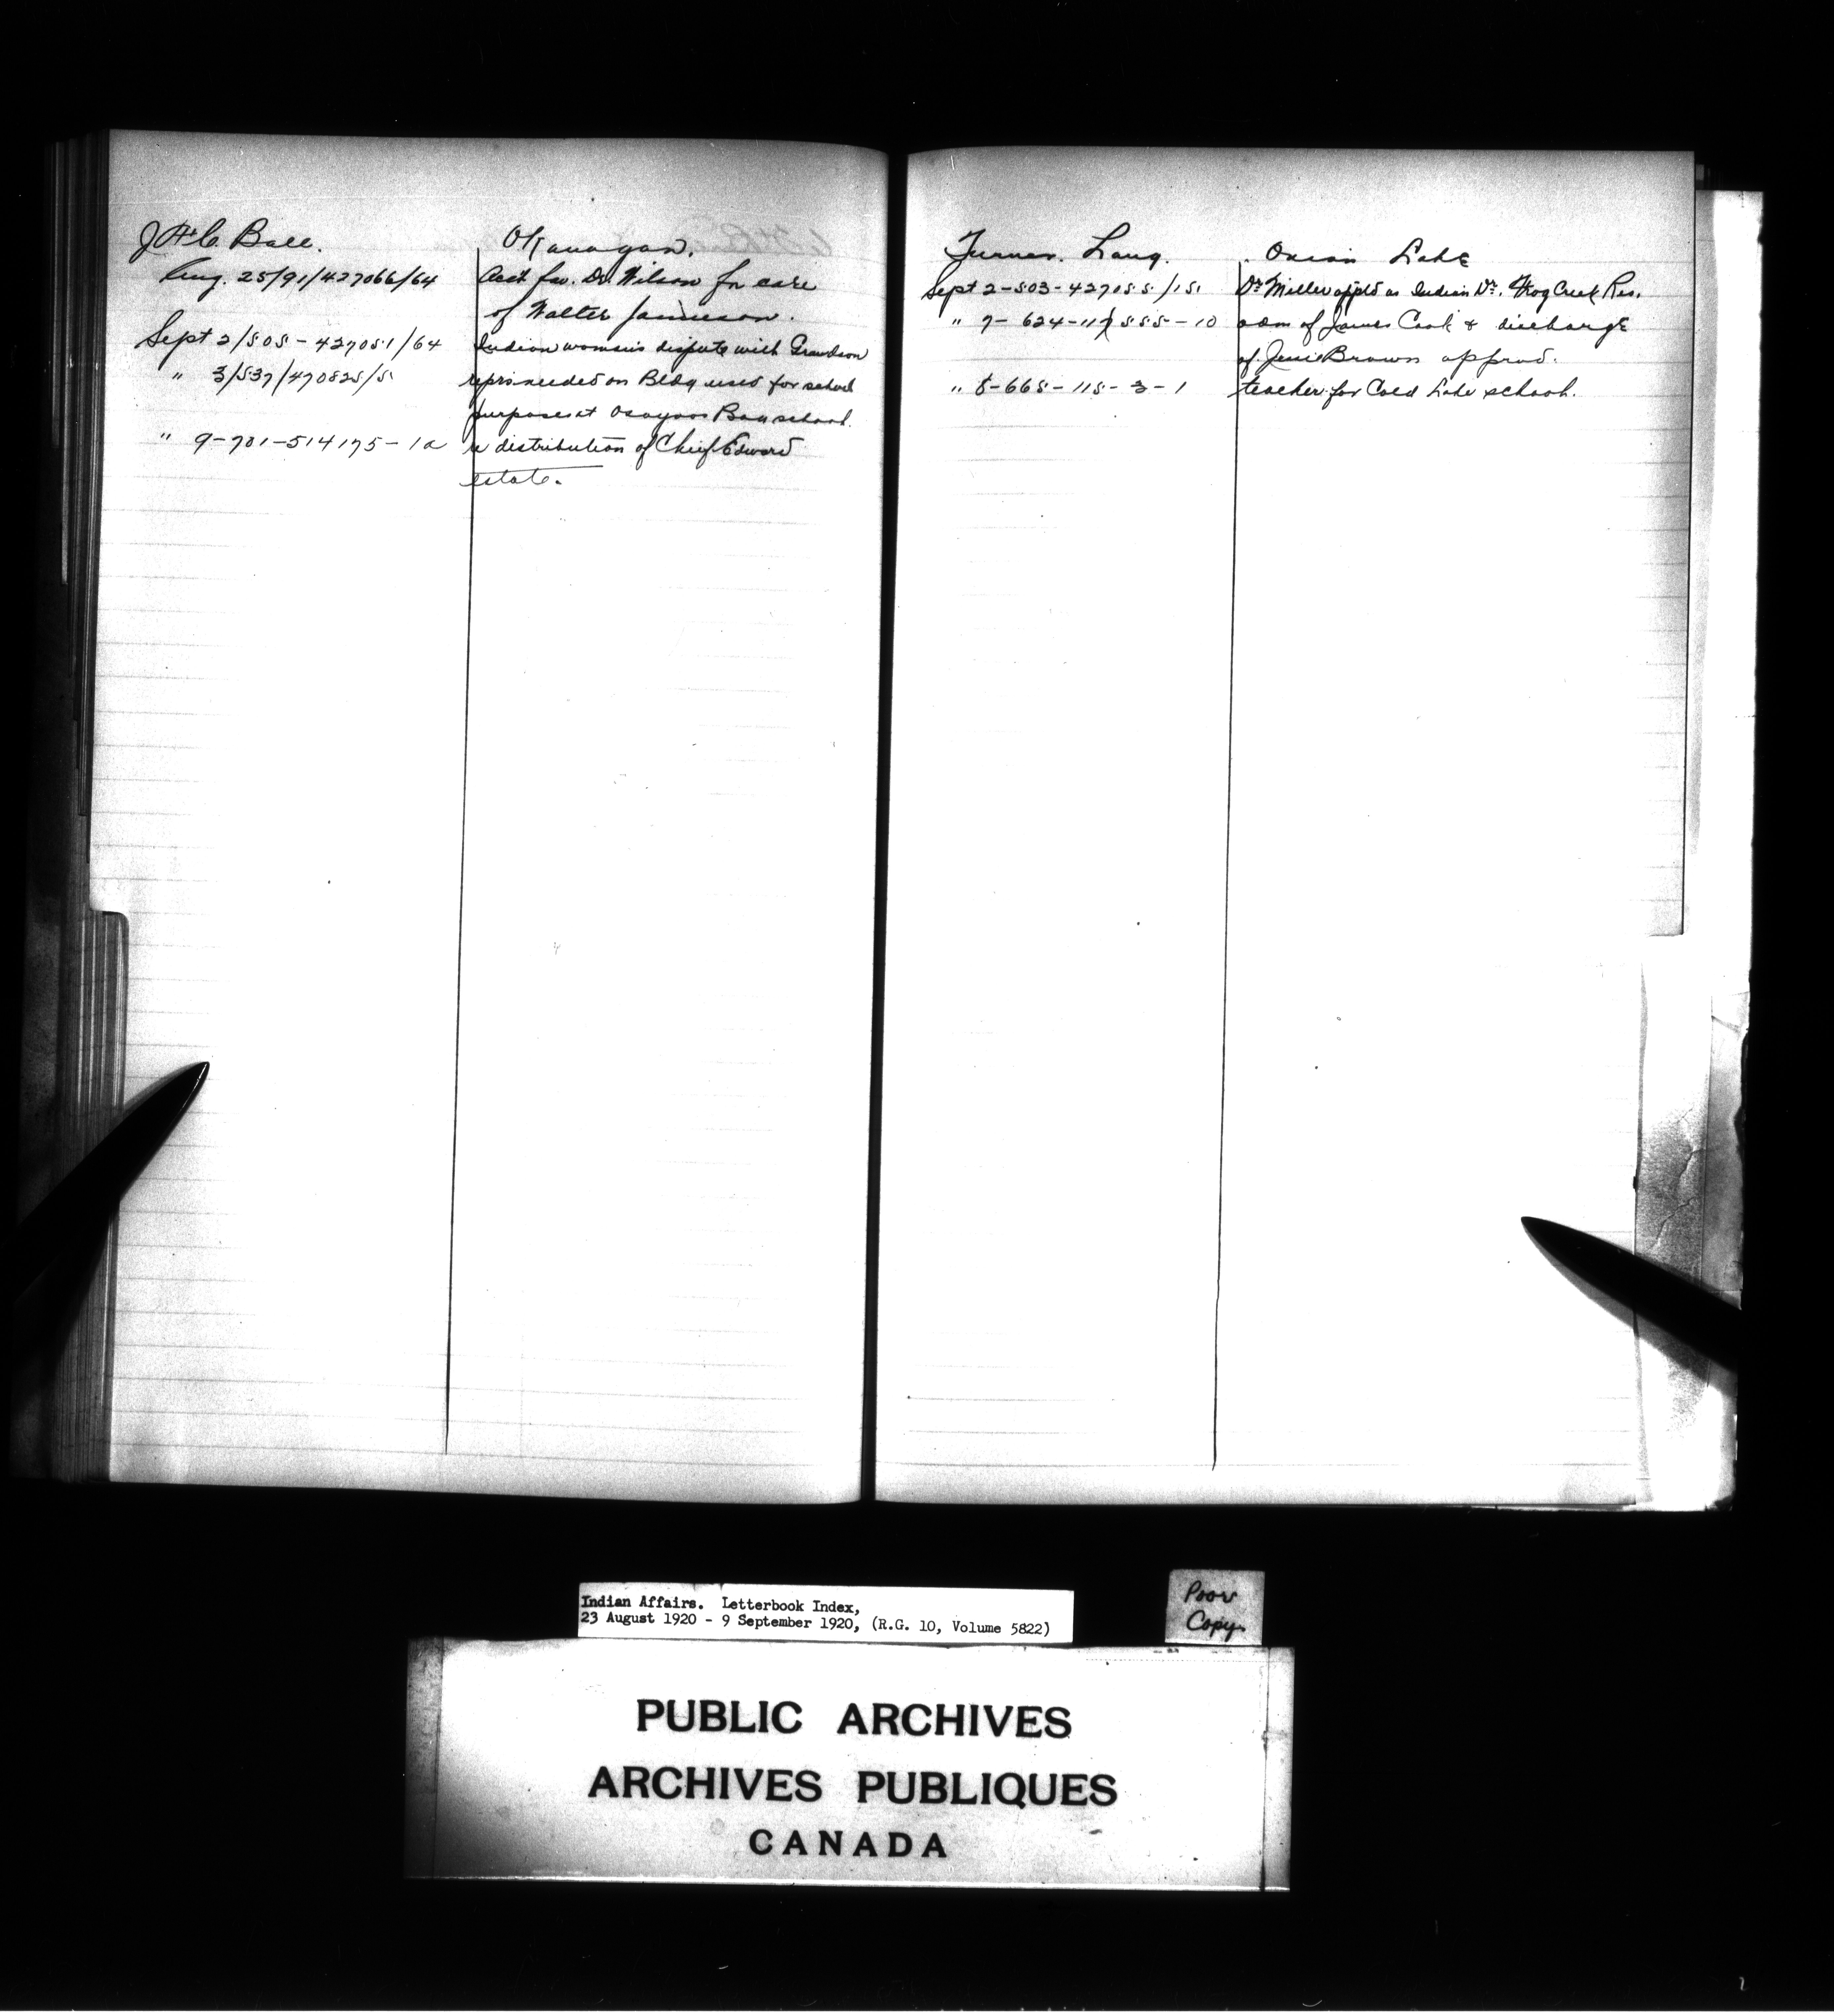 J H C Ball. Okanagan.
Aug. 25/91/427066/64 Acct fav. Dr. Wilson for care
of Walter Jamieson.
Sept 2/505-427051/64 Indian woman's dispute with Grandson
" 3/537/470825/5 reprs needed on Bldg used for school
purposes at Osoyoos Band school.
" 9-701-514175-1a re distribution of Chief Edward
estate.
Turner. Lang. Onion Lake
Sept 2-503-427055/151 Dr Miller apptd as Indian Dr. Frog Creek Res.
" 7-624-117/555-10 adm of James Cook & discharge
of Brown approd.
" 8-665-115-3-1 teacher for Cold Lake school.
Indian Affairs. Letterbook Index,
23 August 1920 - 9 September 1920, (R.G. 10, Volume 5822)
Poor
Copy.
PUBLIC ARCHIVES
ARCHIVES PUBLIQUES
CANADA